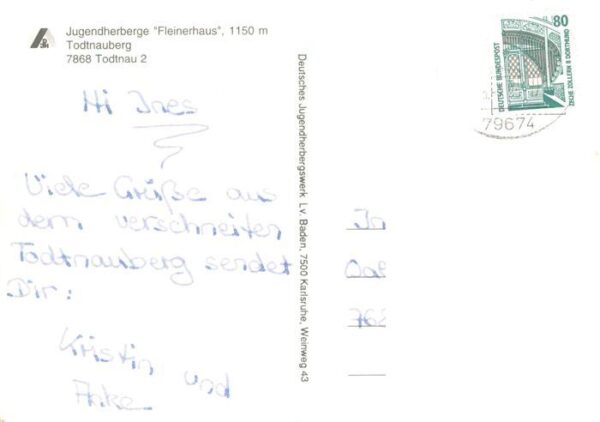 Jugendherberge "Fleinerhaus", 1150 m
Todtnauberg
7868 Todtnau 2
Hi Ines
Viele Grüße aus
dem verschneiten
Todtnauberg sendet
Dir:
Kristin und
Anke
Deutsches Jugendherbergswerk Lv. Baden, 7500 Karlsruhe, Weinweg 43
80
DEUTSCHE BUNDESPOST
ZECHE ZOLLERN II DORTMUND
79674
In
762